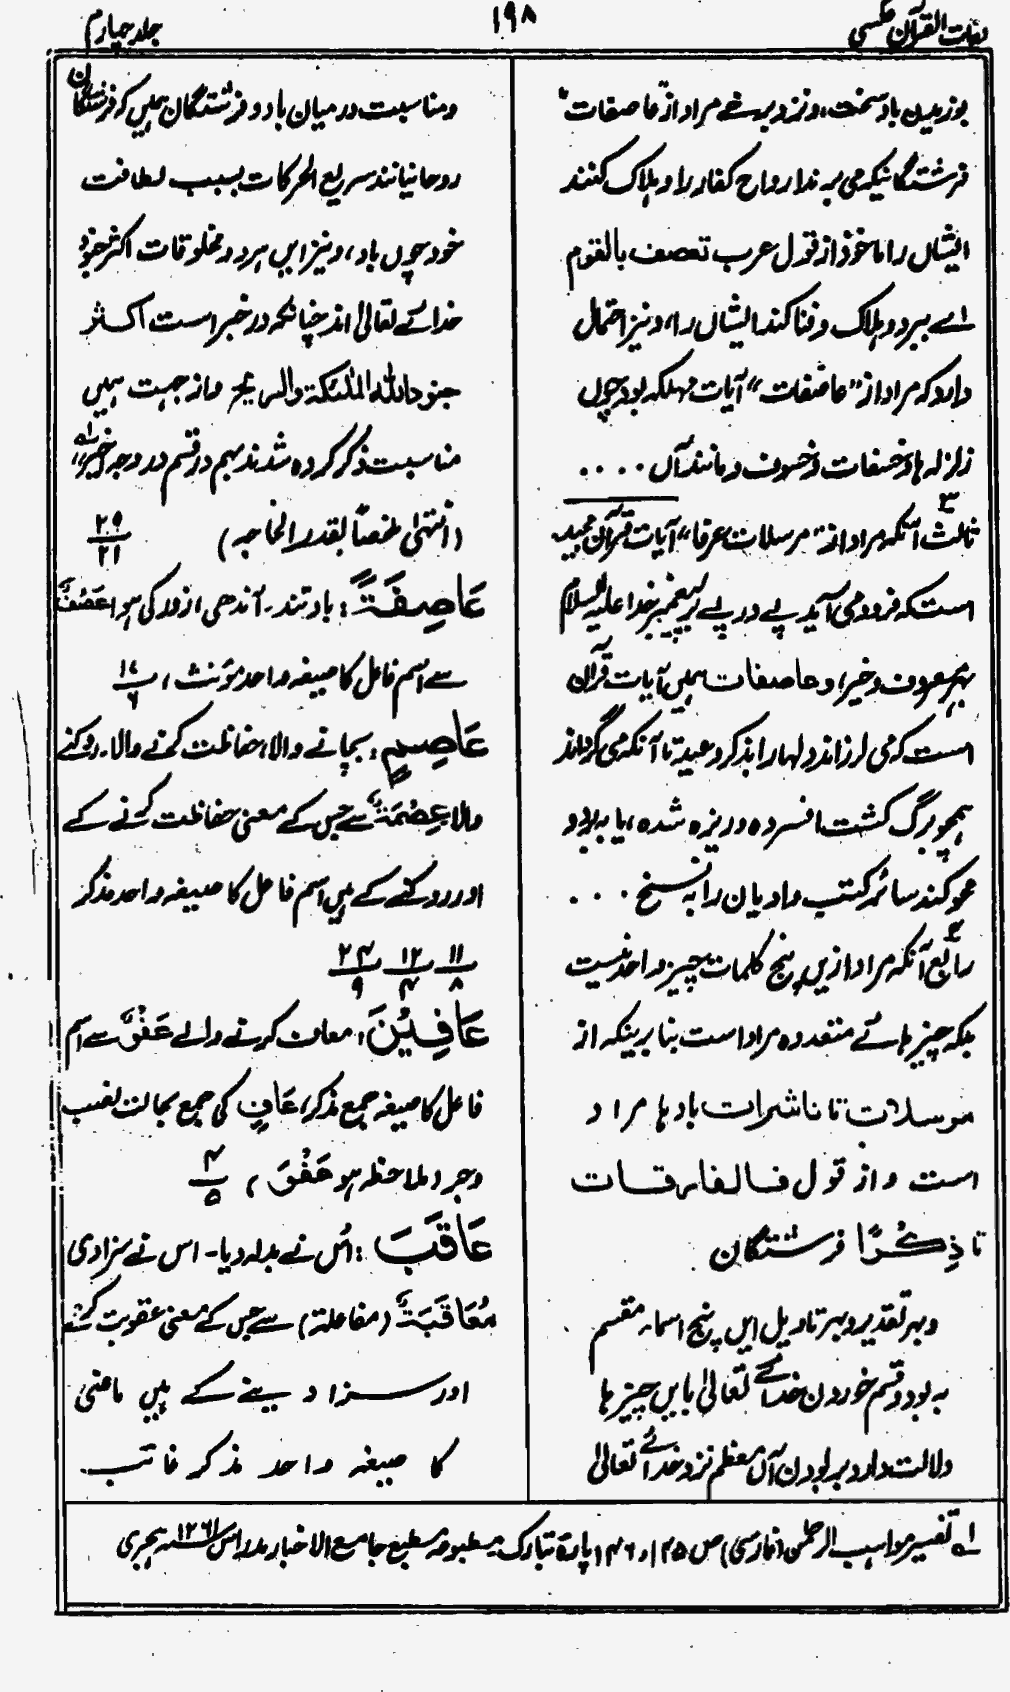 لغات القرآن عکسی
۱۹۸
جلد چہارم
بوزیدن باد سخت، و نزد برخے مراد از عاصفات
فرشتگانیکہ می برند ارواح کفار را و ہلاک کنند
ایشاں را ماخوذ از قول عرب تعصف بالقوم
اے ببرد و ہلاک و فنا کند ایشاں را، و نیز احتمال
دارد کہ مراد از "عاصفات" آیات مہلکہ بود چوں
زلزلہ ہا و خسفات و خسوف و مانند آں ....
ثالث آنکہ مراد از "مرسلات عرفا" آیات قرآن مجید
است کہ فرود می آید پے در پے بر پیغمبر خدا علیہ السلام
بہر معروف و خیر، و عاصفات ہمیں آیات قرآن
است کہ می لرزاند دلہا را بذکر وعید تا آنکہ می گرداند
ہمچو برگ کشت افسردہ و ریزہ شدہ، یا
محو کند سائر کتب و ادیان را بہ نسخ ...
رابع آنکہ مراد ازیں پنج کلمات چیز واحد نیست
بلکہ چیز ہائے متعددہ مراد است بنا برینکہ از
مرسلات تا ناشرات بادہا مراد
است و از قول فالفارقات
تا ذِکْرًا فرشتگان
و بہر تقدیر و بہر تاویل ایں پنج اسماء مقسم
بہ بود و قسم خوردن خدائے تعالیٰ بایں چیز ہا
دلالت دارد بر بودن آں معظم نزد خدائے تعالیٰ
و مناسبت درمیان باد و فرشتگان ہمیں کہ فرشتگان
روحانیانند سریع الحرکات بسبب لطافت
خود چوں باد، و نیز ایں ہر دو مخلوقات اکثر جنود
خدائے تعالیٰ اند چنانکہ در خبر است اکثر
جنود اللہ الملئکۃ والریح و از جہت ہمیں
مناسبت ذکر کردہ شدند بہم در قسم در وجہ اخیر"
(انتہٰی ملخصًا بقدر الحاجہ) ۲۹/۲۱
عَاصِفَۃً: باد تند۔ آندھی از ور کی ہوا عَصْفٌ
سے اسم فاعل کا صیغہ واحد مؤنث، ۱۷/۶
عَاصِمٍ: بچانے والا، حفاظت کرنے والا۔ روکنے
والا عِصْمَۃٌ سے جس کے معنی حفاظت کرنے کے
اور روکنے کے ہیں اسم فاعل کا صیغہ واحد مذکر
۱۱/۸ ۱۲/۴ ۲۴/۹
عَافِیْنَ: معاف کرنے والے عَفْوٌ سے اسم
فاعل کا صیغہ جمع مذکر، عَافٍ کی جمع بحالت نصب
و جر (ملاحظہ ہو عَفْوَ)، ۴/۵
عَاقَبَ: اُس نے بدلہ دیا۔ اس نے سزا دی
مُعَاقَبَۃٌ (مفاعلۃ) سے جس کے معنی عقوبت کرنے
اور سزا دینے کے ہیں ماضی
کا صیغہ واحد مذکر غائب
لہ تفسیر مواہب الرحمٰن (فارسی) ص ۱۴۵ و ۱۴۶ پارۂ تبارک مطبوعہ مطبع جامع الاخبار مدراس ۱۲۶۱ سنہ ہجری